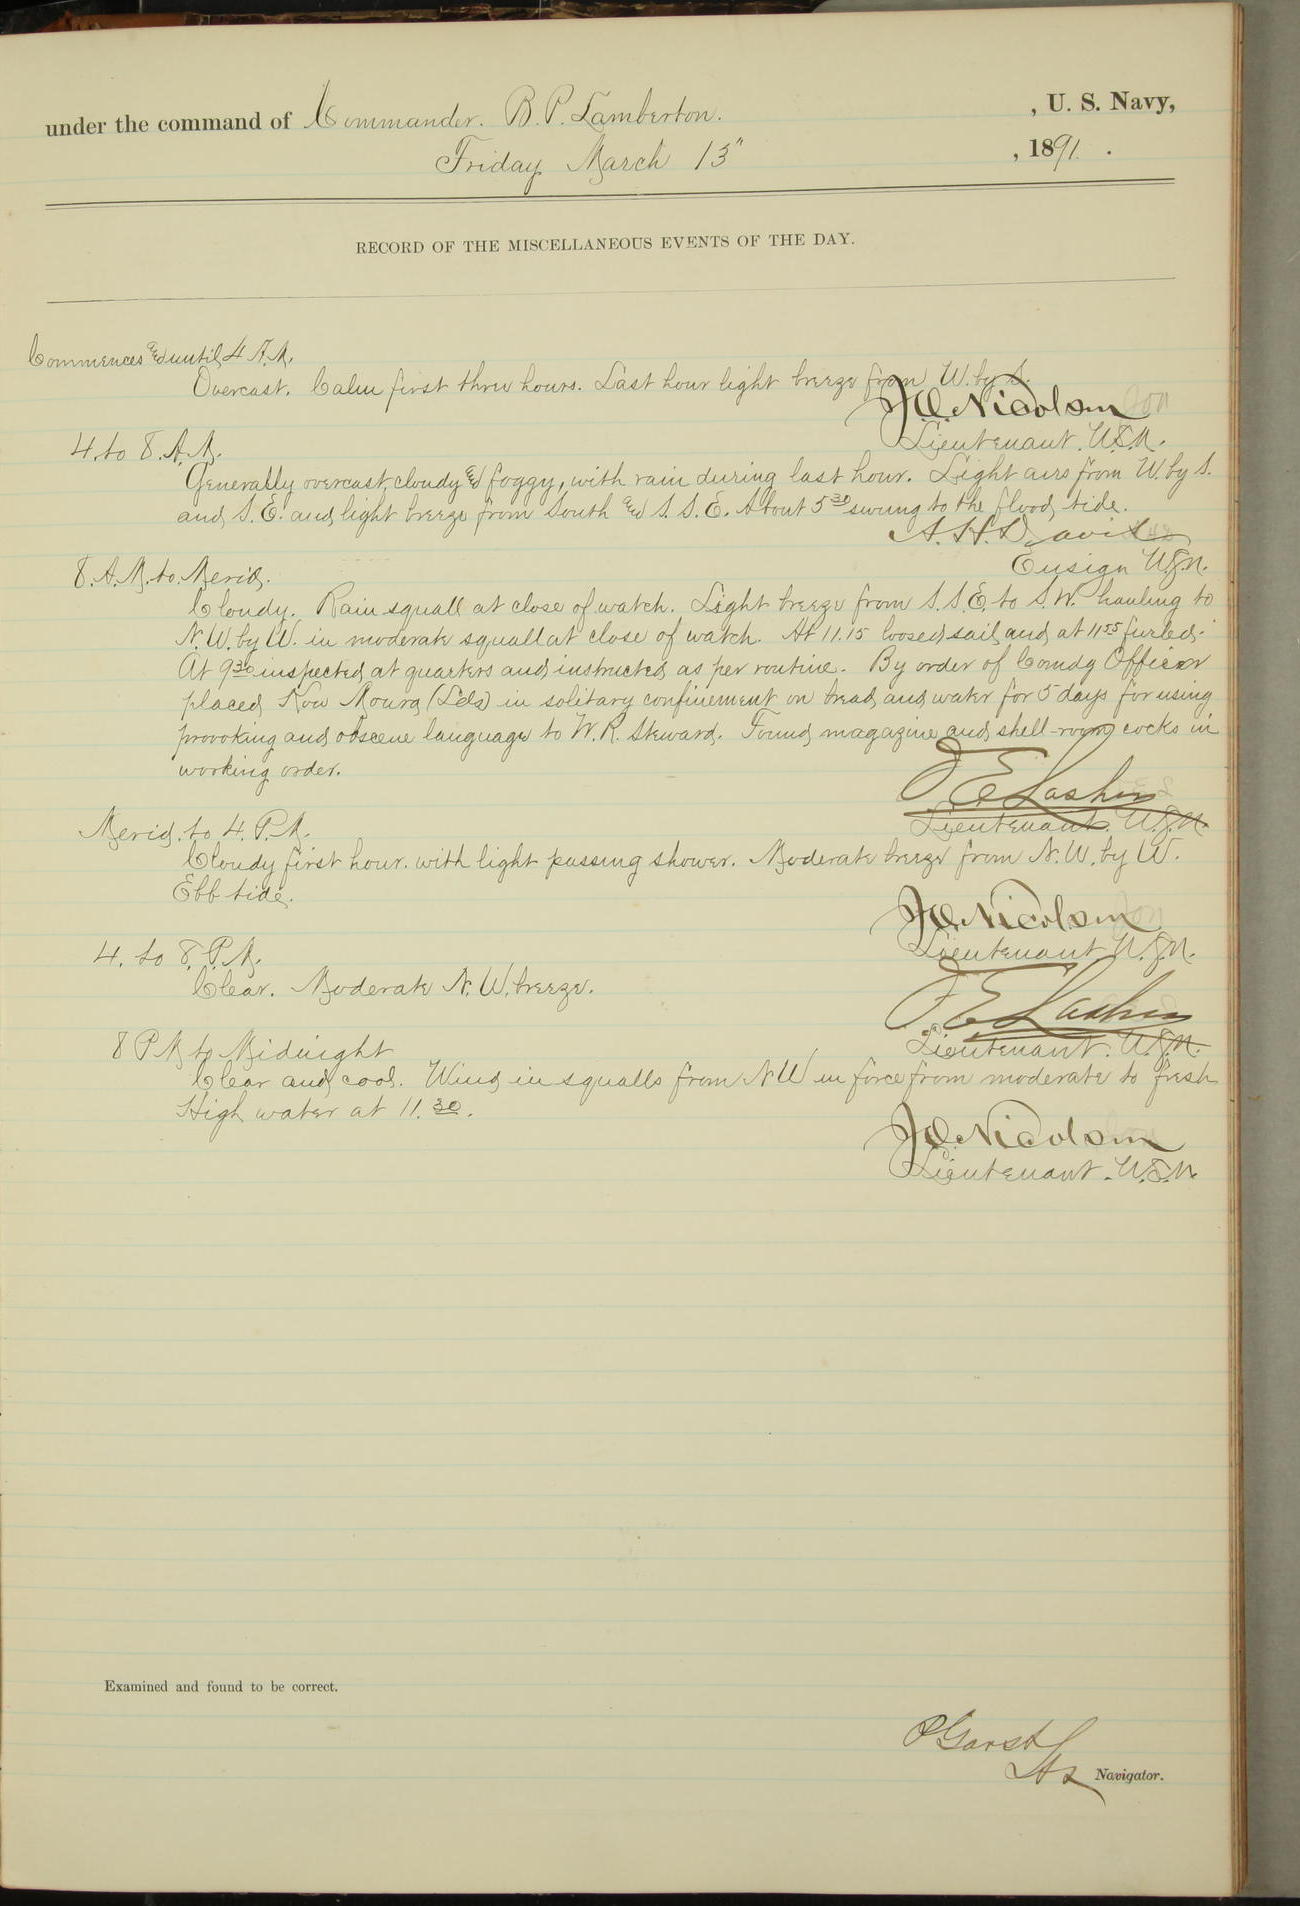 under the command of Commander. B. P. Lamberton. , U. S. Navy,
Friday March 13" , 1891 .
RECORD OF THE MISCELLANEOUS EVENTS OF THE DAY.
Commences & until 4 A.M.
Overcast. Calm first three hours. Last hour light breeze from W. by S.
J.O. Nicolson
Lieutenant. U.S.N.
4. to 8. A.M.
Generally overcast, cloudy & foggy, with rain during last hour. Light airs from W. by S.
and S. E. and light breeze from South & S. S. E. About 5 30 swung to the flood tide.
A. H. Davis
Ensign U.S.N.
8. A.M. to. Merid.
Cloudy. Rain squall at close of watch. Light breeze from S. S. E. to S. W. hauling to
N. W. by W. in moderate squall at close of watch. At 11.15 loosed sail and at 11 55 furled.
At 9 30 inspected at quarters and instructed as per routine. By order of Comdg Officer
placed in solitary confinement on bread and water for 5 days for using
provoking and obscene language to W. R. Steward. Found magazine and shell-room cocks in
working order.
Lieutenant. U.S.N.
Merid. to 4. P.M.
Cloudy first hour. with light passing shower. Moderate breeze from N. W. by W.
Ebb tide.
J.O. Nicolson
Lieutenant U.S.N.
4. to 8. P.M.
Clear. Moderate N. W. breeze.
Lieutenant. U.S.N.
8 P M to Midnight
Clear and cool. Wind in squalls from N W in force from moderate to fresh
High water at 11. 30.
J.O. Nicolson
Lieutenant. U.S.N.
Examined and found to be correct.
P Garst
Navigator.